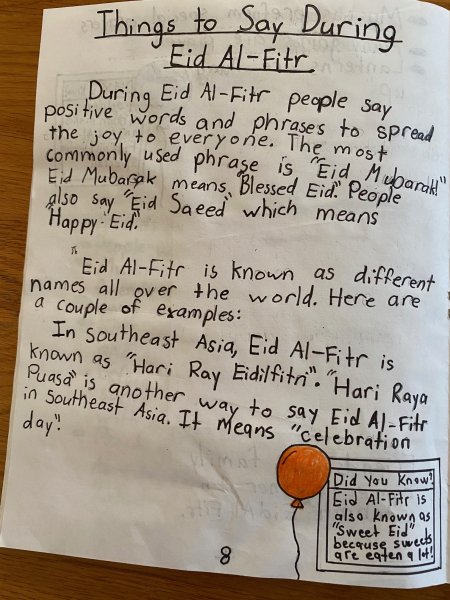 Things to Say During
Eid Al-Fitr
During Eid Al-Fitr people say
positive words and phrases to spread
the joy to everyone. The most
commonly used phrase is "Eid Mubarak!"
Eid Mubarak means "Blessed Eid." People
also say "Eid Saeed" which means
"Happy Eid."
Eid Al-Fitr is known as different
names all over the world. Here are
a couple of examples:
In Southeast Asia, Eid Al-Fitr is
known as "Hari Ray Eidilfitri". "Hari Raya
Puasa" is another way to say Eid Al-Fitr
in Southeast Asia. It Means "celebration
day".
Did You Know?
Eid Al-Fitr is
also known as
"Sweet Eid"
because sweets
are eaten a lot!
8